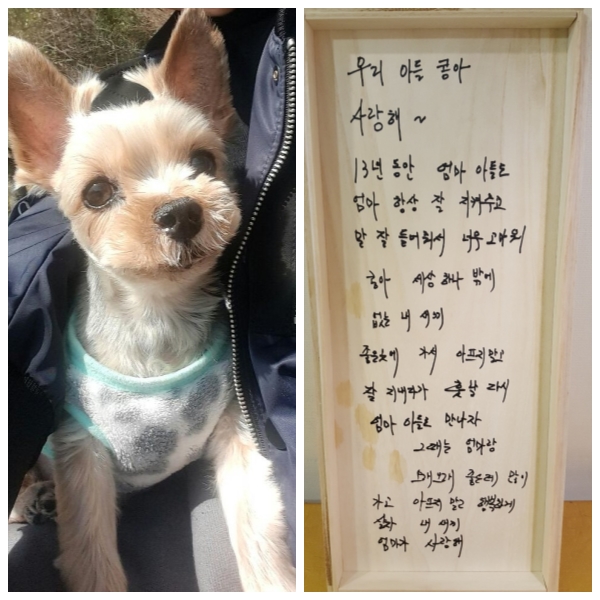 우리 아들 콩아
사랑해~
13년 동안 엄마 아들로
엄마 항상 잘 지켜주고
말 잘 들어줘서 너무 고마워
콩아 세상 하나 밖에
없는 내 새끼
좋은곳에 가서 아프지말고
잘 지내다가 훗날 다시
엄마 아들로 만나자
그때는 엄마랑
오래오래 좋은데 많이
가고 아프지 말고 행복하게
살자 내 새끼
엄마가 사랑해